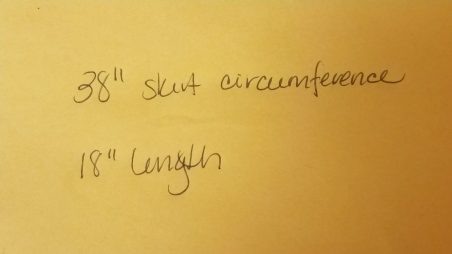 38" skirt circumference
18" length